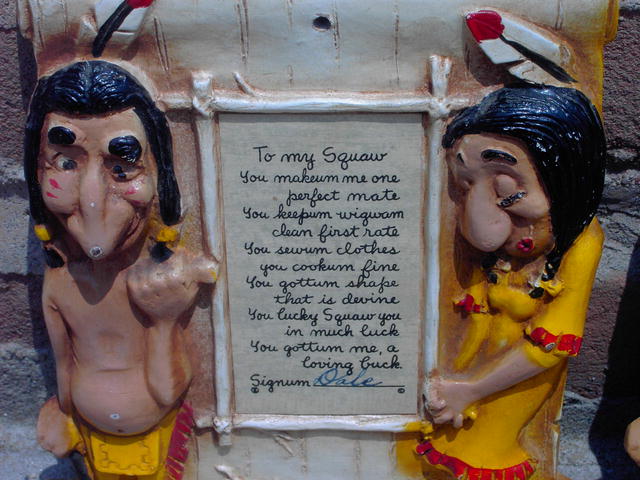 To my Squaw
You makeum me one
perfect mate
You keepum wigwam
clean first rate
You sewum clothes
you cookum fine
You gottum shape
that is devine
You lucky Squaw you
in much luck
You gottum me, a
loving buck.
Signum Dale
© ©